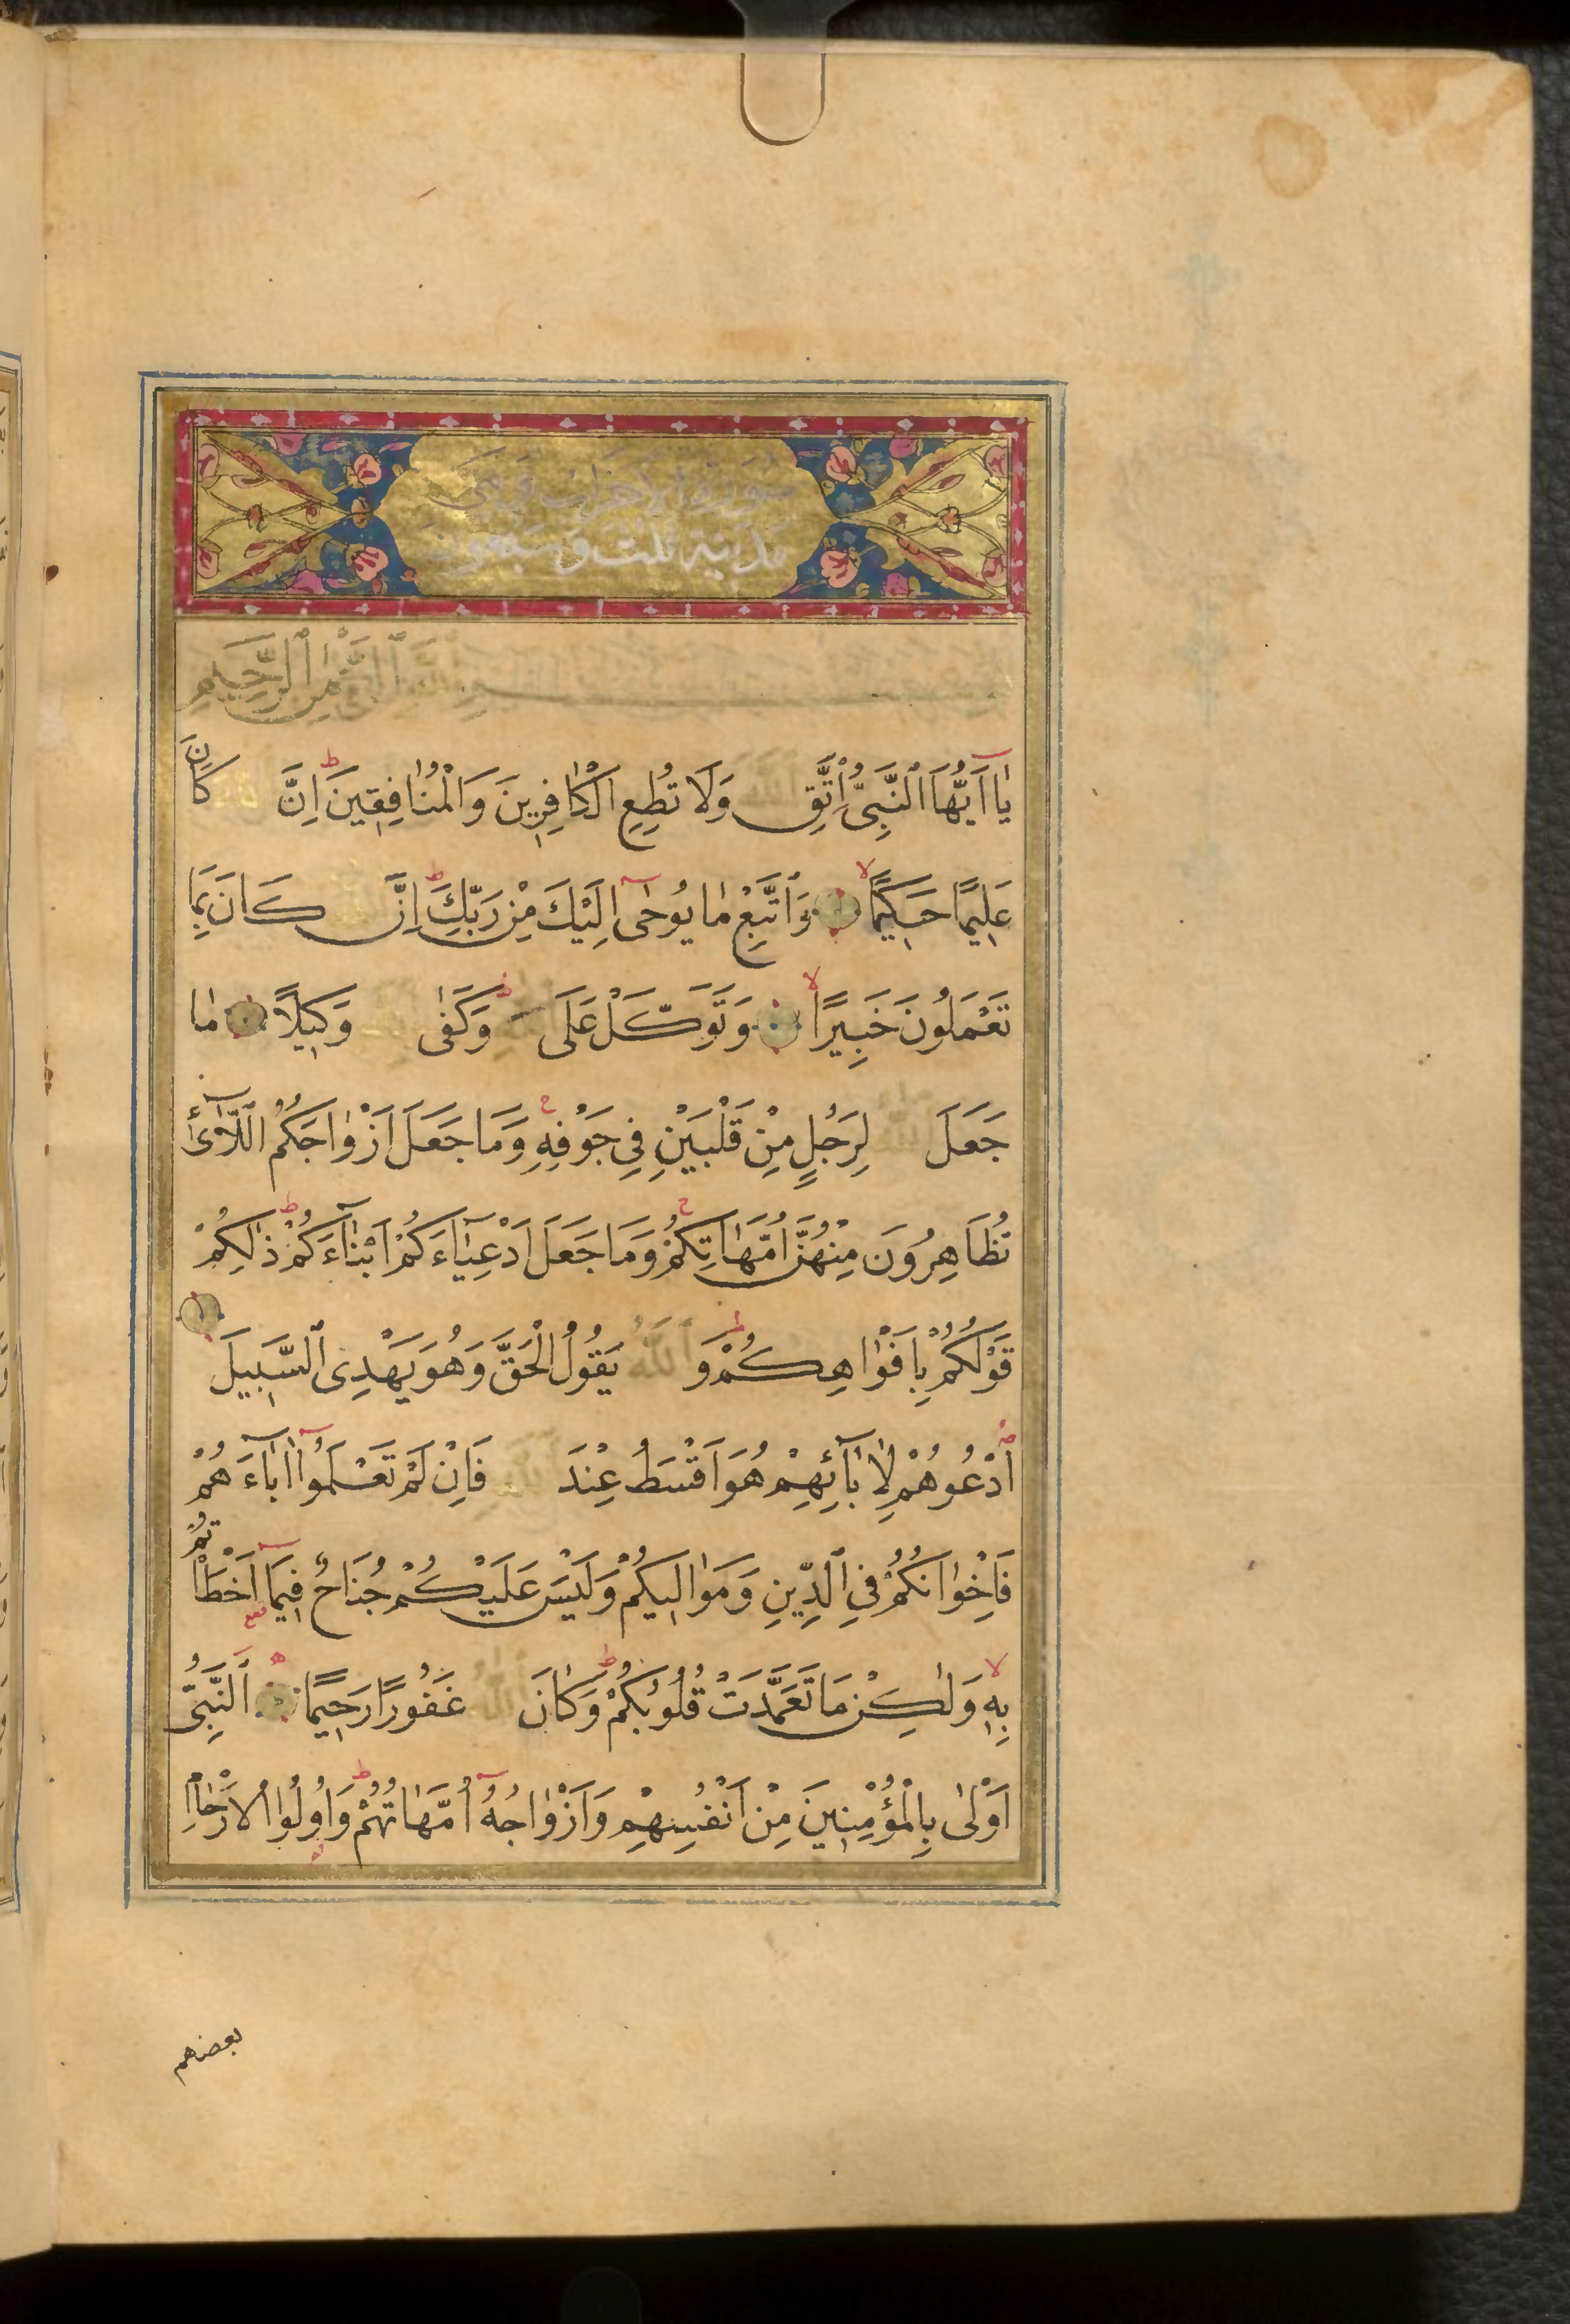 سورة الاحزاب وهی
مدینة ثلث وسبعون
بِسْمِ ٱللَّهِ ٱلرَّحْمٰنِ ٱلرَّحِيمِ
يٰا اَيُّهَا ٱلنَّبِىُّ اتَّقِ ٱللّٰهَ وَلَا تُطِعِ الْكٰافِرِينَ وَالْمُنٰافِقِينَ اِنَّ ٱللّٰهَ كَانَ
عَلِيمًا حَكِيمًا وَٱتَّبِعْ مٰا يُوحٰى اِلَيْكَ مِنْ رَبِّكَ اِنَّ ٱللّٰهَ كَانَ بِمَا
تَعْمَلُونَ خَبِيرًا وَتَوَكَّلْ عَلَى ٱللّٰهِ وَكَفٰى بِٱللّٰهِ وَكِيلًا مٰا
جَعَلَ ٱللّٰهُ لِرَجُلٍ مِنْ قَلْبَيْنِ فِى جَوْفِهِ وَمَا جَعَلَ اَزْوٰاجَكُمُ اللّٰآئِ
تُظَاهِرُونَ مِنْهُنَّ اُمَّهٰاتِكُمْ وَمَا جَعَلَ اَدْعِيٰاءَكُمْ اَبْنٰآءَكُمْ ذٰلِكُمْ
قَوْلُكُمْ بِاَفْوٰاهِكُمْ وَ ٱللّٰهُ يَقُولُ الْحَقَّ وَهُوَ يَهْدِى ٱلسَّبِيلَ
اُدْعُوهُمْ لِاٰبٰآئِهِمْ هُوَ اَقْسَطُ عِنْدَ ٱللّٰهِ فَاِنْ لَمْ تَعْلَمُوا اٰبٰآءَهُمْ
فَاِخْوٰانُكُمْ فِى ٱلدِّينِ وَمَوٰالِيكُمْ وَلَيْسَ عَلَيْكُمْ جُنَاحٌ فِيمَآ اَخْطَاْتُمْ
بِهِ وَلٰكِنْ مَا تَعَمَّدَتْ قُلُوبُكُمْ وَكٰانَ ٱللّٰهُ غَفُورًا رَحِيمًا ٱلنَّبِىُّ
اَوْلٰى بِالْمُؤْمِنِينَ مِنْ اَنْفُسِهِمْ وَاَزْوٰاجُهُ اُمَّهٰاتُهُمْ وَاُولُوا الْاَرْحٰامِ
بعضهم